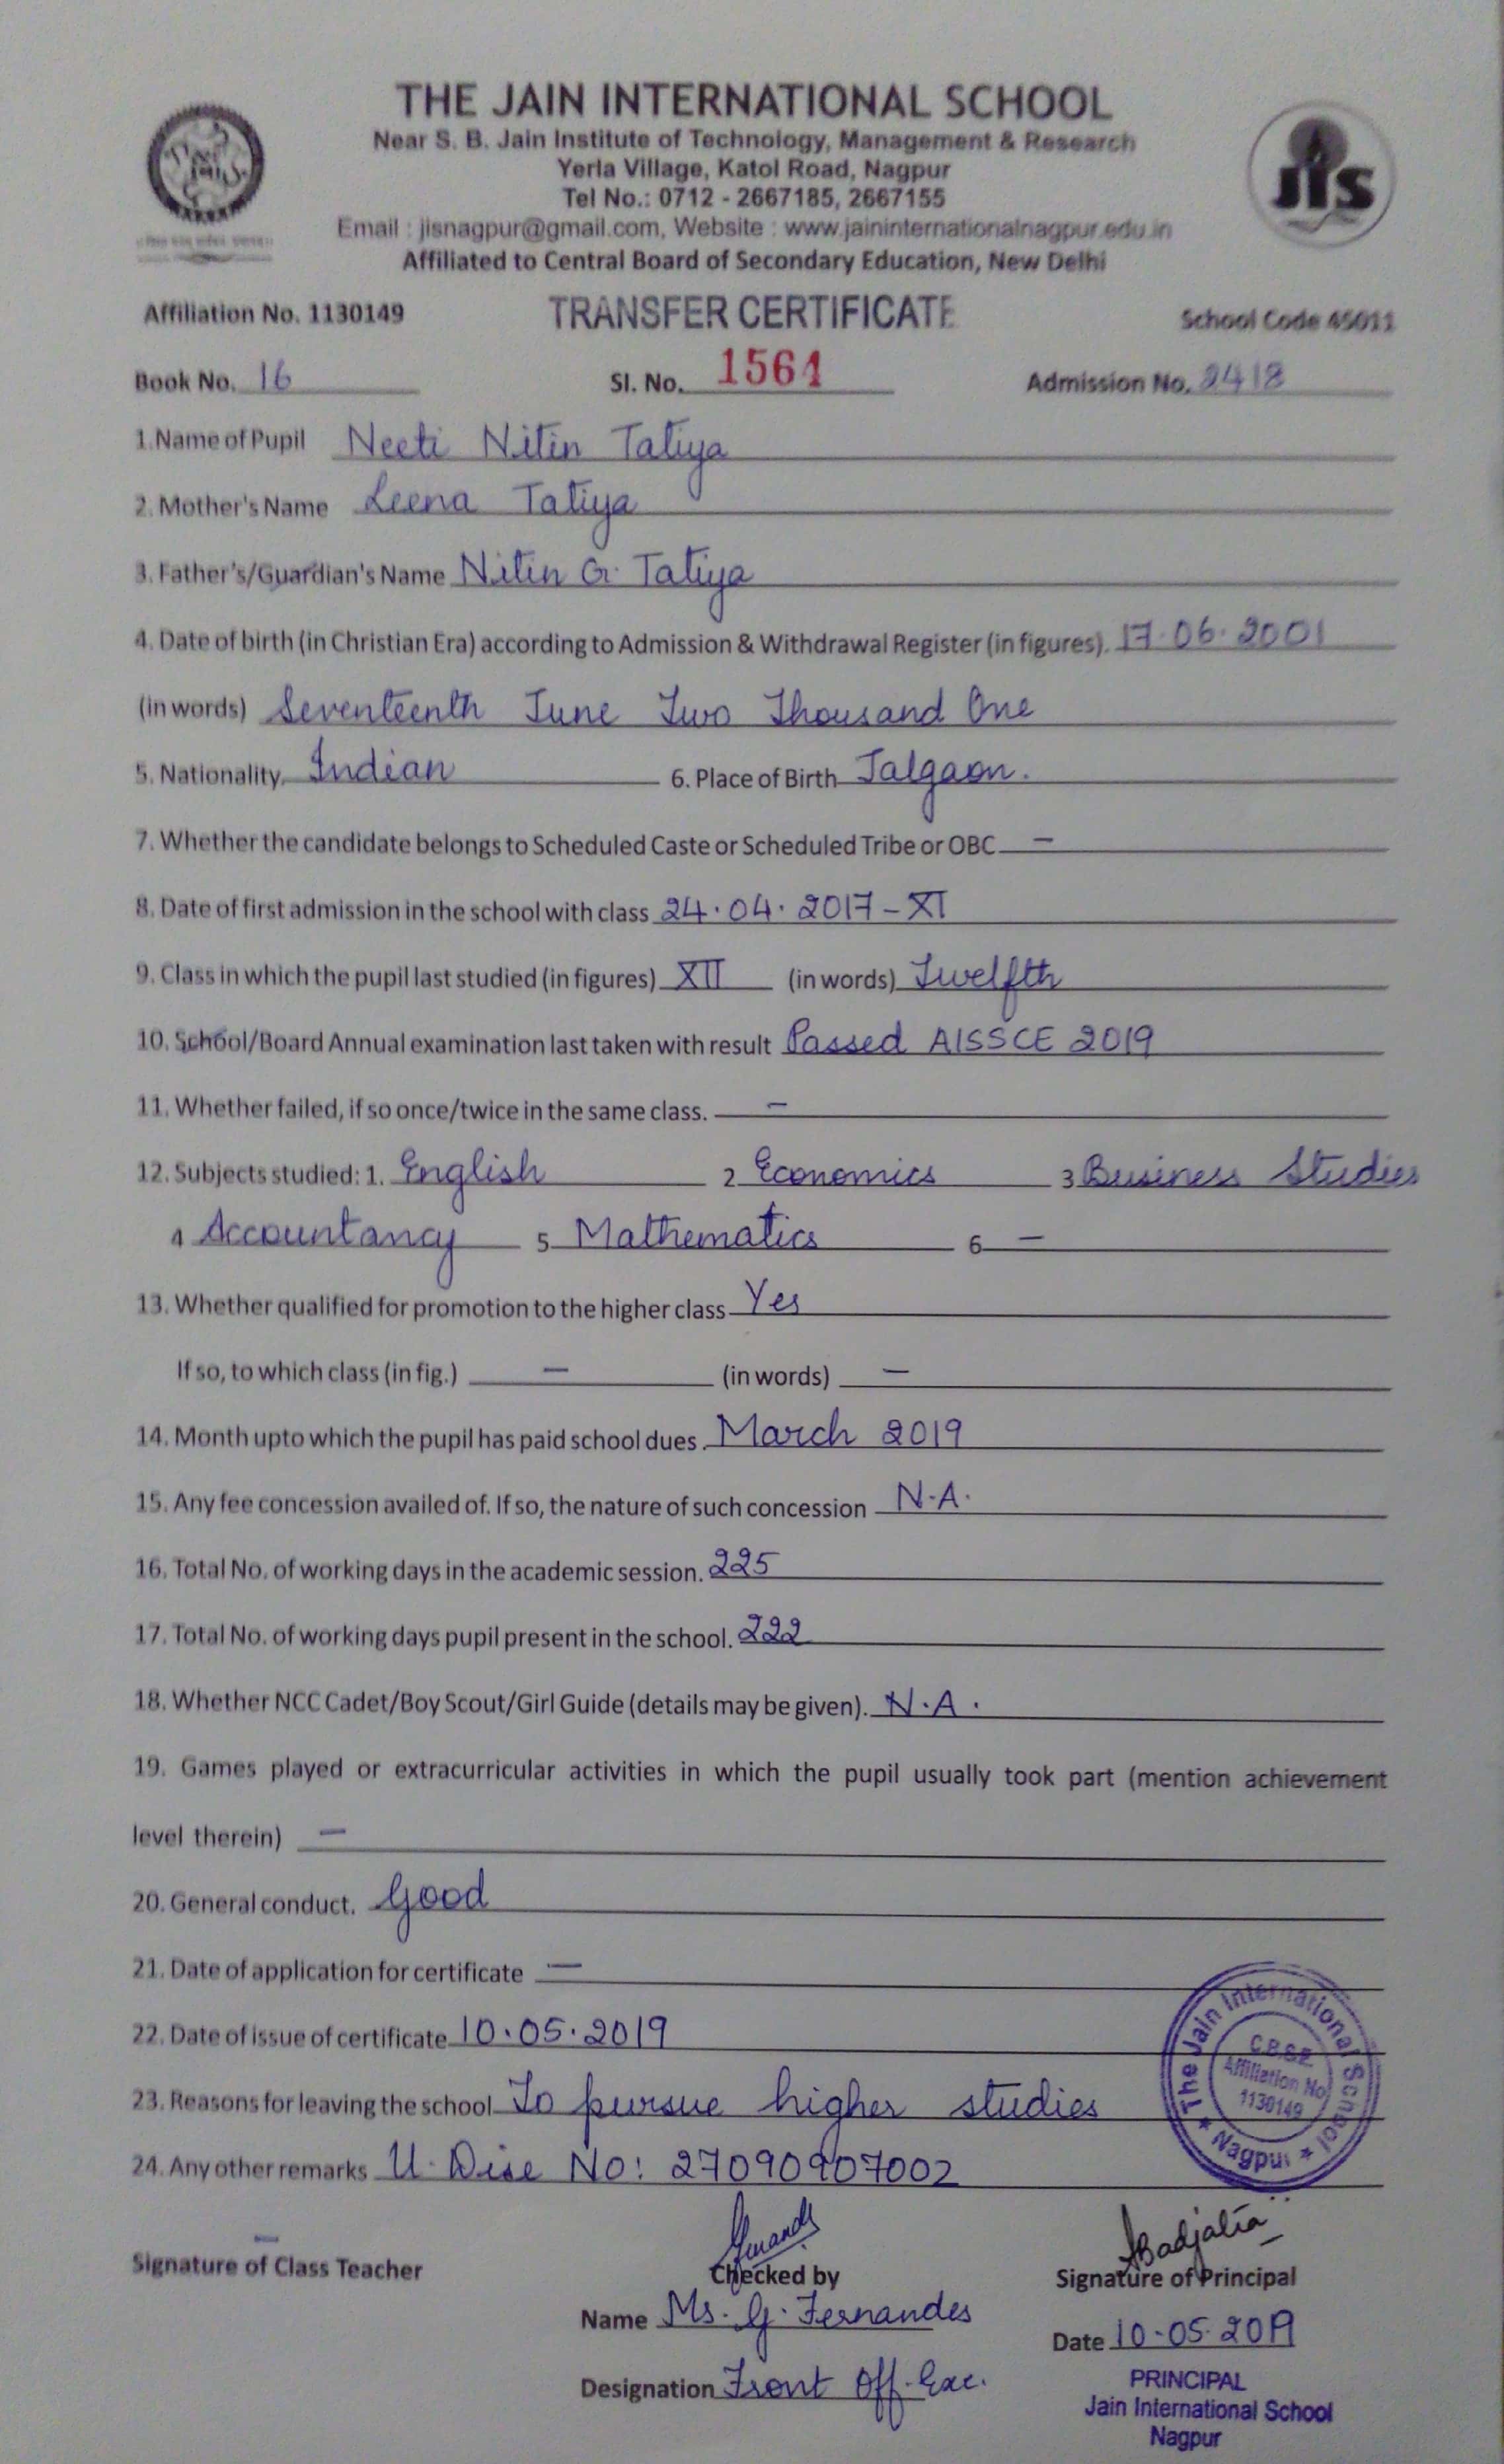 THE JAIN INTERNATIONAL SCHOOL
Near S. B. Jain Institute of Technology, Management & Research
Yerla Village, Katol Road, Nagpur
Tel No.: 0712 - 2667185, 2667155
Email : jisnagpur@gmail.com, Website : www.jaininternationalnagpur.edu.in
Affiliated to Central Board of Secondary Education, New Delhi
jis
Affiliation No. 1130149 TRANSFER CERTIFICATE School Code 45011
Book No. 16 Sl. No. 1561 Admission No. 2418
1.Name of Pupil Neeti Nitin Tatiya
2. Mother's Name Leena Tatiya
3. Father's/Guardian's Name Nitin G. Tatiya
4. Date of birth (in Christian Era) according to Admission & Withdrawal Register (in figures). 17.06.2001
(in words) Seventeenth June Two Thousand One
5. Nationality. Indian 6. Place of Birth Jalgaon.
7. Whether the candidate belongs to Scheduled Caste or Scheduled Tribe or OBC —
8. Date of first admission in the school with class 24.04.2017 - XI
9. Class in which the pupil last studied (in figures) XII (in words) Twelfth
10. School/Board Annual examination last taken with result Passed AISSCE 2019
11. Whether failed, if so once/twice in the same class. —
12. Subjects studied: 1. English 2 Economics 3 Business Studies
4 Accountancy 5 Mathematics 6 —
13. Whether qualified for promotion to the higher class Yes
If so, to which class (in fig.) — (in words) —
14. Month upto which the pupil has paid school dues. March 2019
15. Any fee concession availed of. If so, the nature of such concession N.A.
16. Total No. of working days in the academic session. 225
17. Total No. of working days pupil present in the school. 222
18. Whether NCC Cadet/Boy Scout/Girl Guide (details may be given). N.A.
19. Games played or extracurricular activities in which the pupil usually took part (mention achievement
level therein) —
20. General conduct. Good
21. Date of application for certificate —
22. Date of issue of certificate 10.05.2019
23. Reasons for leaving the school To pursue higher studies
24. Any other remarks U. Dise No: 27090907002
The Jain International School ★ Nagpur ★
C.B.S.E.
Affiliation No
1130149
—
Signature of Class Teacher Checked by Signature of Principal
Name Ms. G. Fernandes
Date 10-05-2019
Designation Front Off. Exe.
PRINCIPAL
Jain International School
Nagpur